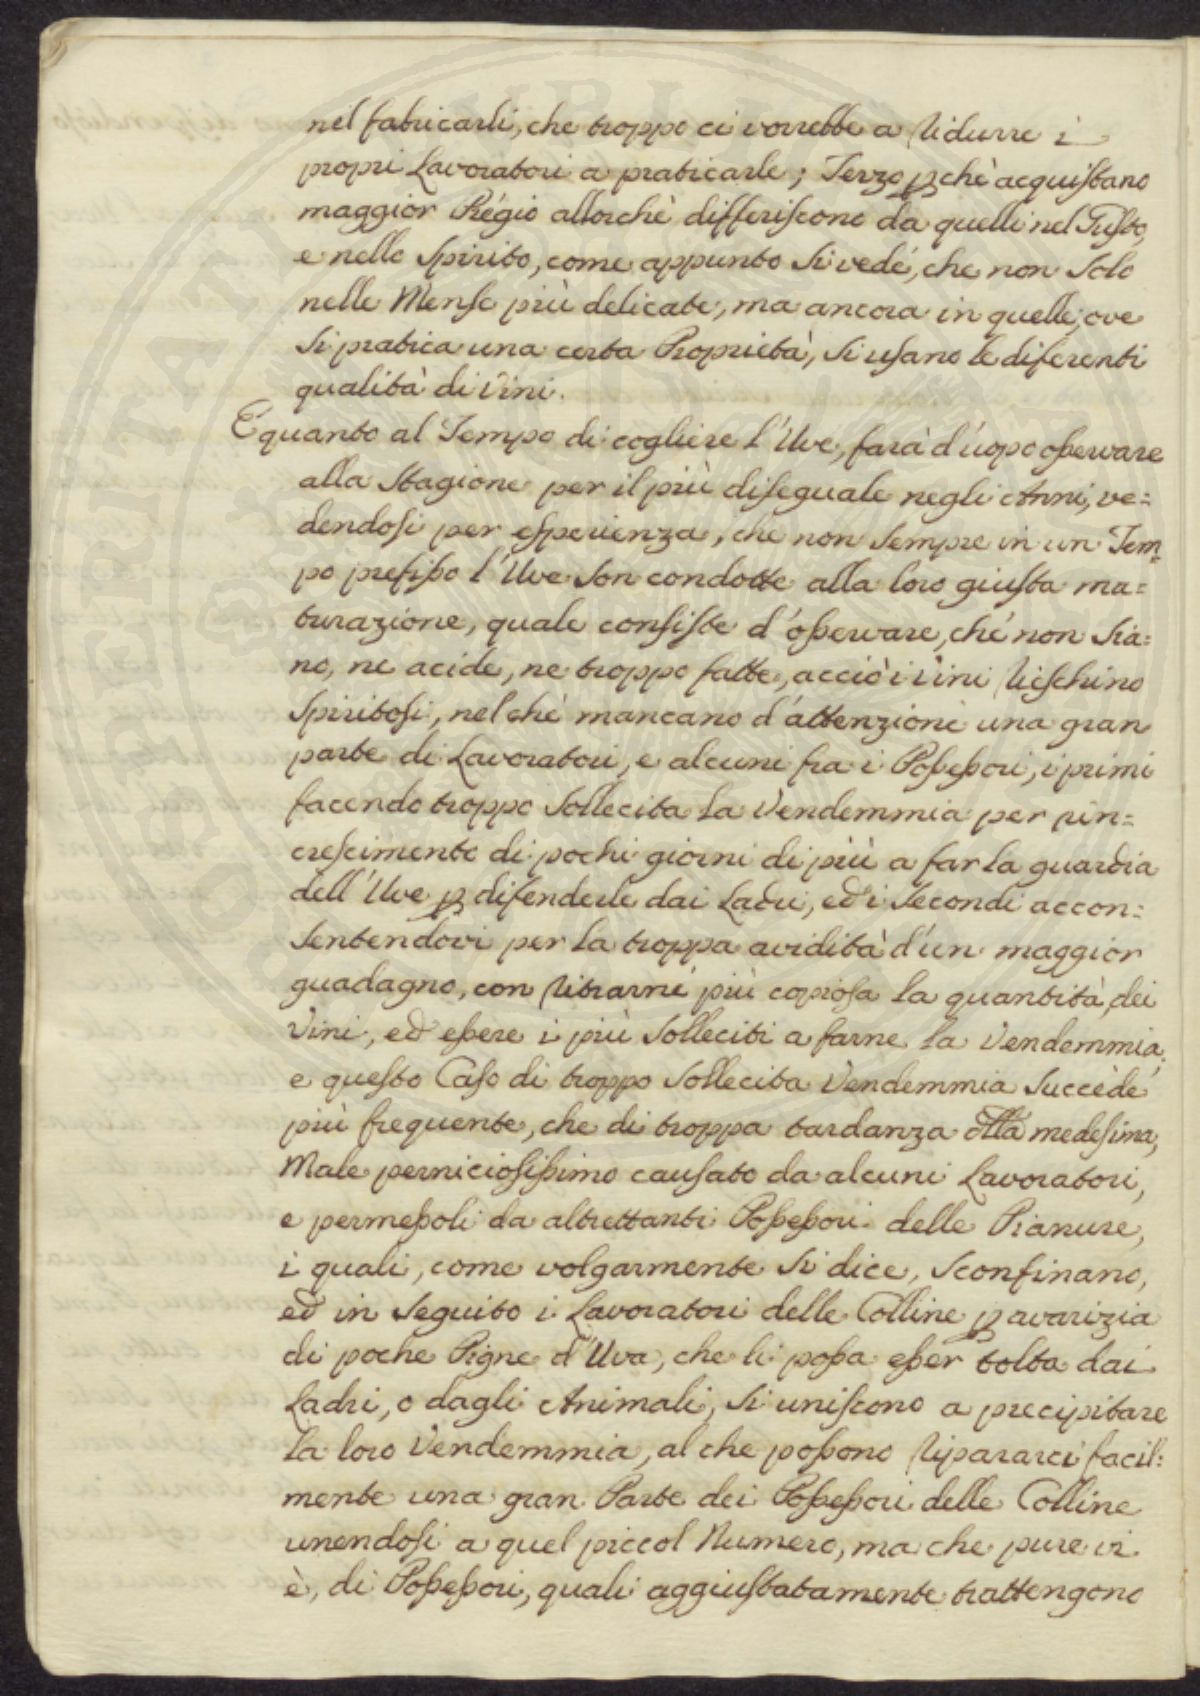 nel fabricarli, che troppo ci vorrebbe a ridurre i
propri Lavoratori a praticarle; Terzo pchè acquistano
maggior Régio allorchè differiscono da quelli nel Gusto,
e nello Spirito, come appunto si vede, che non solo
nelle Mense più delicate, ma ancora in quelle, ove
si pratica una certa Proprietà, si usano le diferenti
qualità di Vini.
E quanto al Tempo di cogliere l'Uve, farà d'uopo osservare
alla Stagione per il più diseguale negli Anni, ve=
dendosi per esperienza, che non sempre in un Tem=
po prefisso l'Uve son condotte alla loro giusta ma=
turazione, quale consiste d'osservare, chè non sia=
no, ne acide, ne troppo fatte, acciò i Vini rieschino
Spiritosi, nel chè mancano d'attenzione una gran
parte di Lavoratori, e alcuni fra i Possessori, i primi
facendo troppo sollecita la Vendemmia per rin=
crescimento di pochi giorni di più a far la guardia
dell'Uve p difenderle dai Ladri, ed i Secondi accon=
sentendovi per la troppa avidità d'un maggior
guadagno, con ritrarne più copiosa la quantità dei
Vini, ed essere i più solleciti a farne la Vendemmia,
e questo Caso di troppo sollecita Vendemmia succède
più frequente, che di troppa tardanza della medesima,
Male perniciosissimo causato da alcuni Lavoratori,
e permessoli da altrettanti Possessori delle Pianure,
i quali, come volgarmente si dice, Sconfinano,
ed in seguito i Lavoratori delle Colline p avarizia
di poche Pigne d'Uva, che li possa esser tolta dai
Ladri, o dagli Animali, si uniscono a precipitare
la loro Vendemmia, al che possono ripararci facil=
mente una gran Parte dei Possessori delle Colline
unendosi a quel piccol Numero, ma che pure vi
è, di Possessori, quali aggiustatamente trattengono